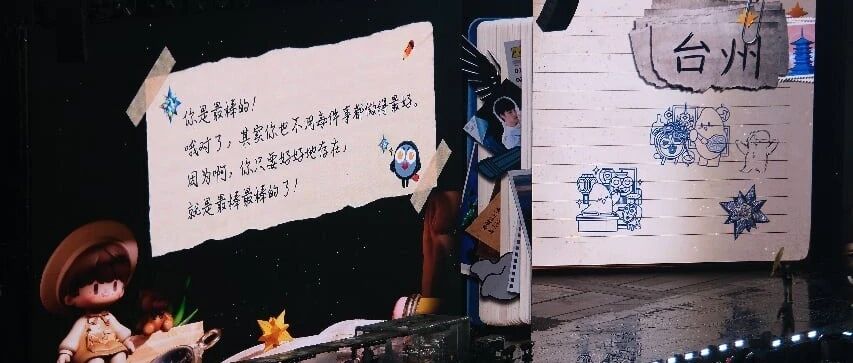 你是最棒的！
哦对了，其实你也不用每件事都做得最好。
因为啊，你只要好好地存在，
就是最棒最棒的了！
台州